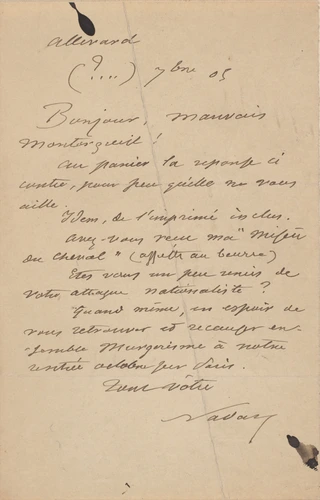 Allevard
(?....) 7bre 05
Bonjour, mauvais
Montorgueil!
Au panier la reponse ci
contre, pour peu qu'elle ne vous
aille.
Idem, de l'imprimé inclus.
Avez-vous reçu ma "Misère
du Cheval" (assiette au beurre)
Etes vous un peu remis de
votre attaque nationaliste?
Quand même, en espoir de
vous retrouver et recauser en-
semble Murgerisme à notre
rentrée octobre sur Paris.
Tout vôtre
Nadar